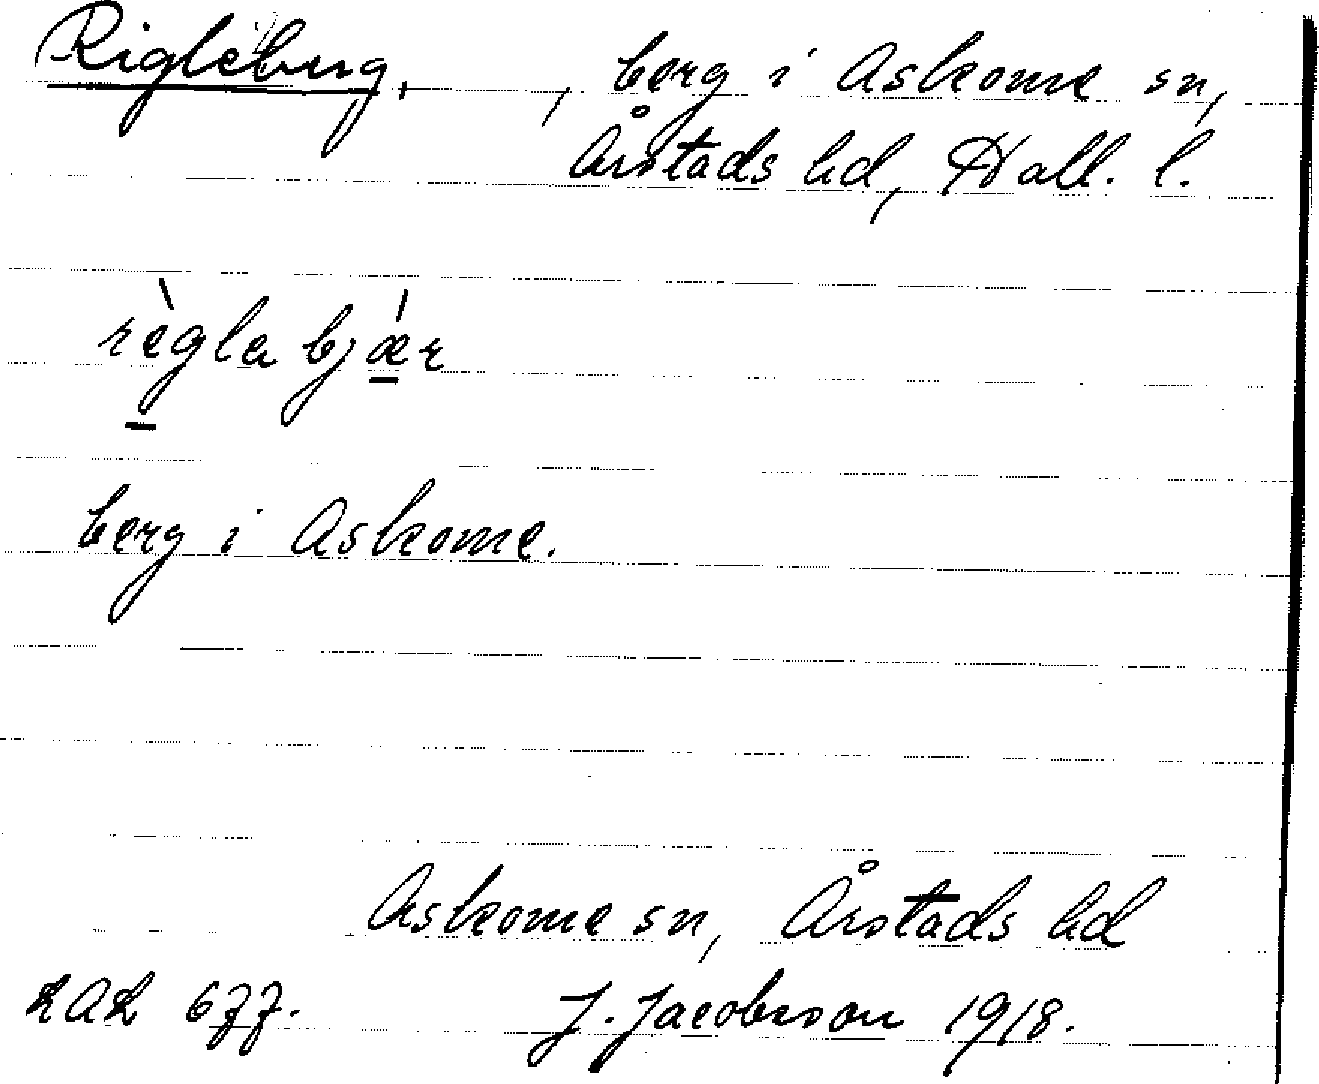 Rigleberg, , berg i Askome sn,
Årstads hd, Hall. l.
règla bjǽr
berg i Askome.
Askome sn, Årstads hd
LAL 677. J. Jacobsson 1918.